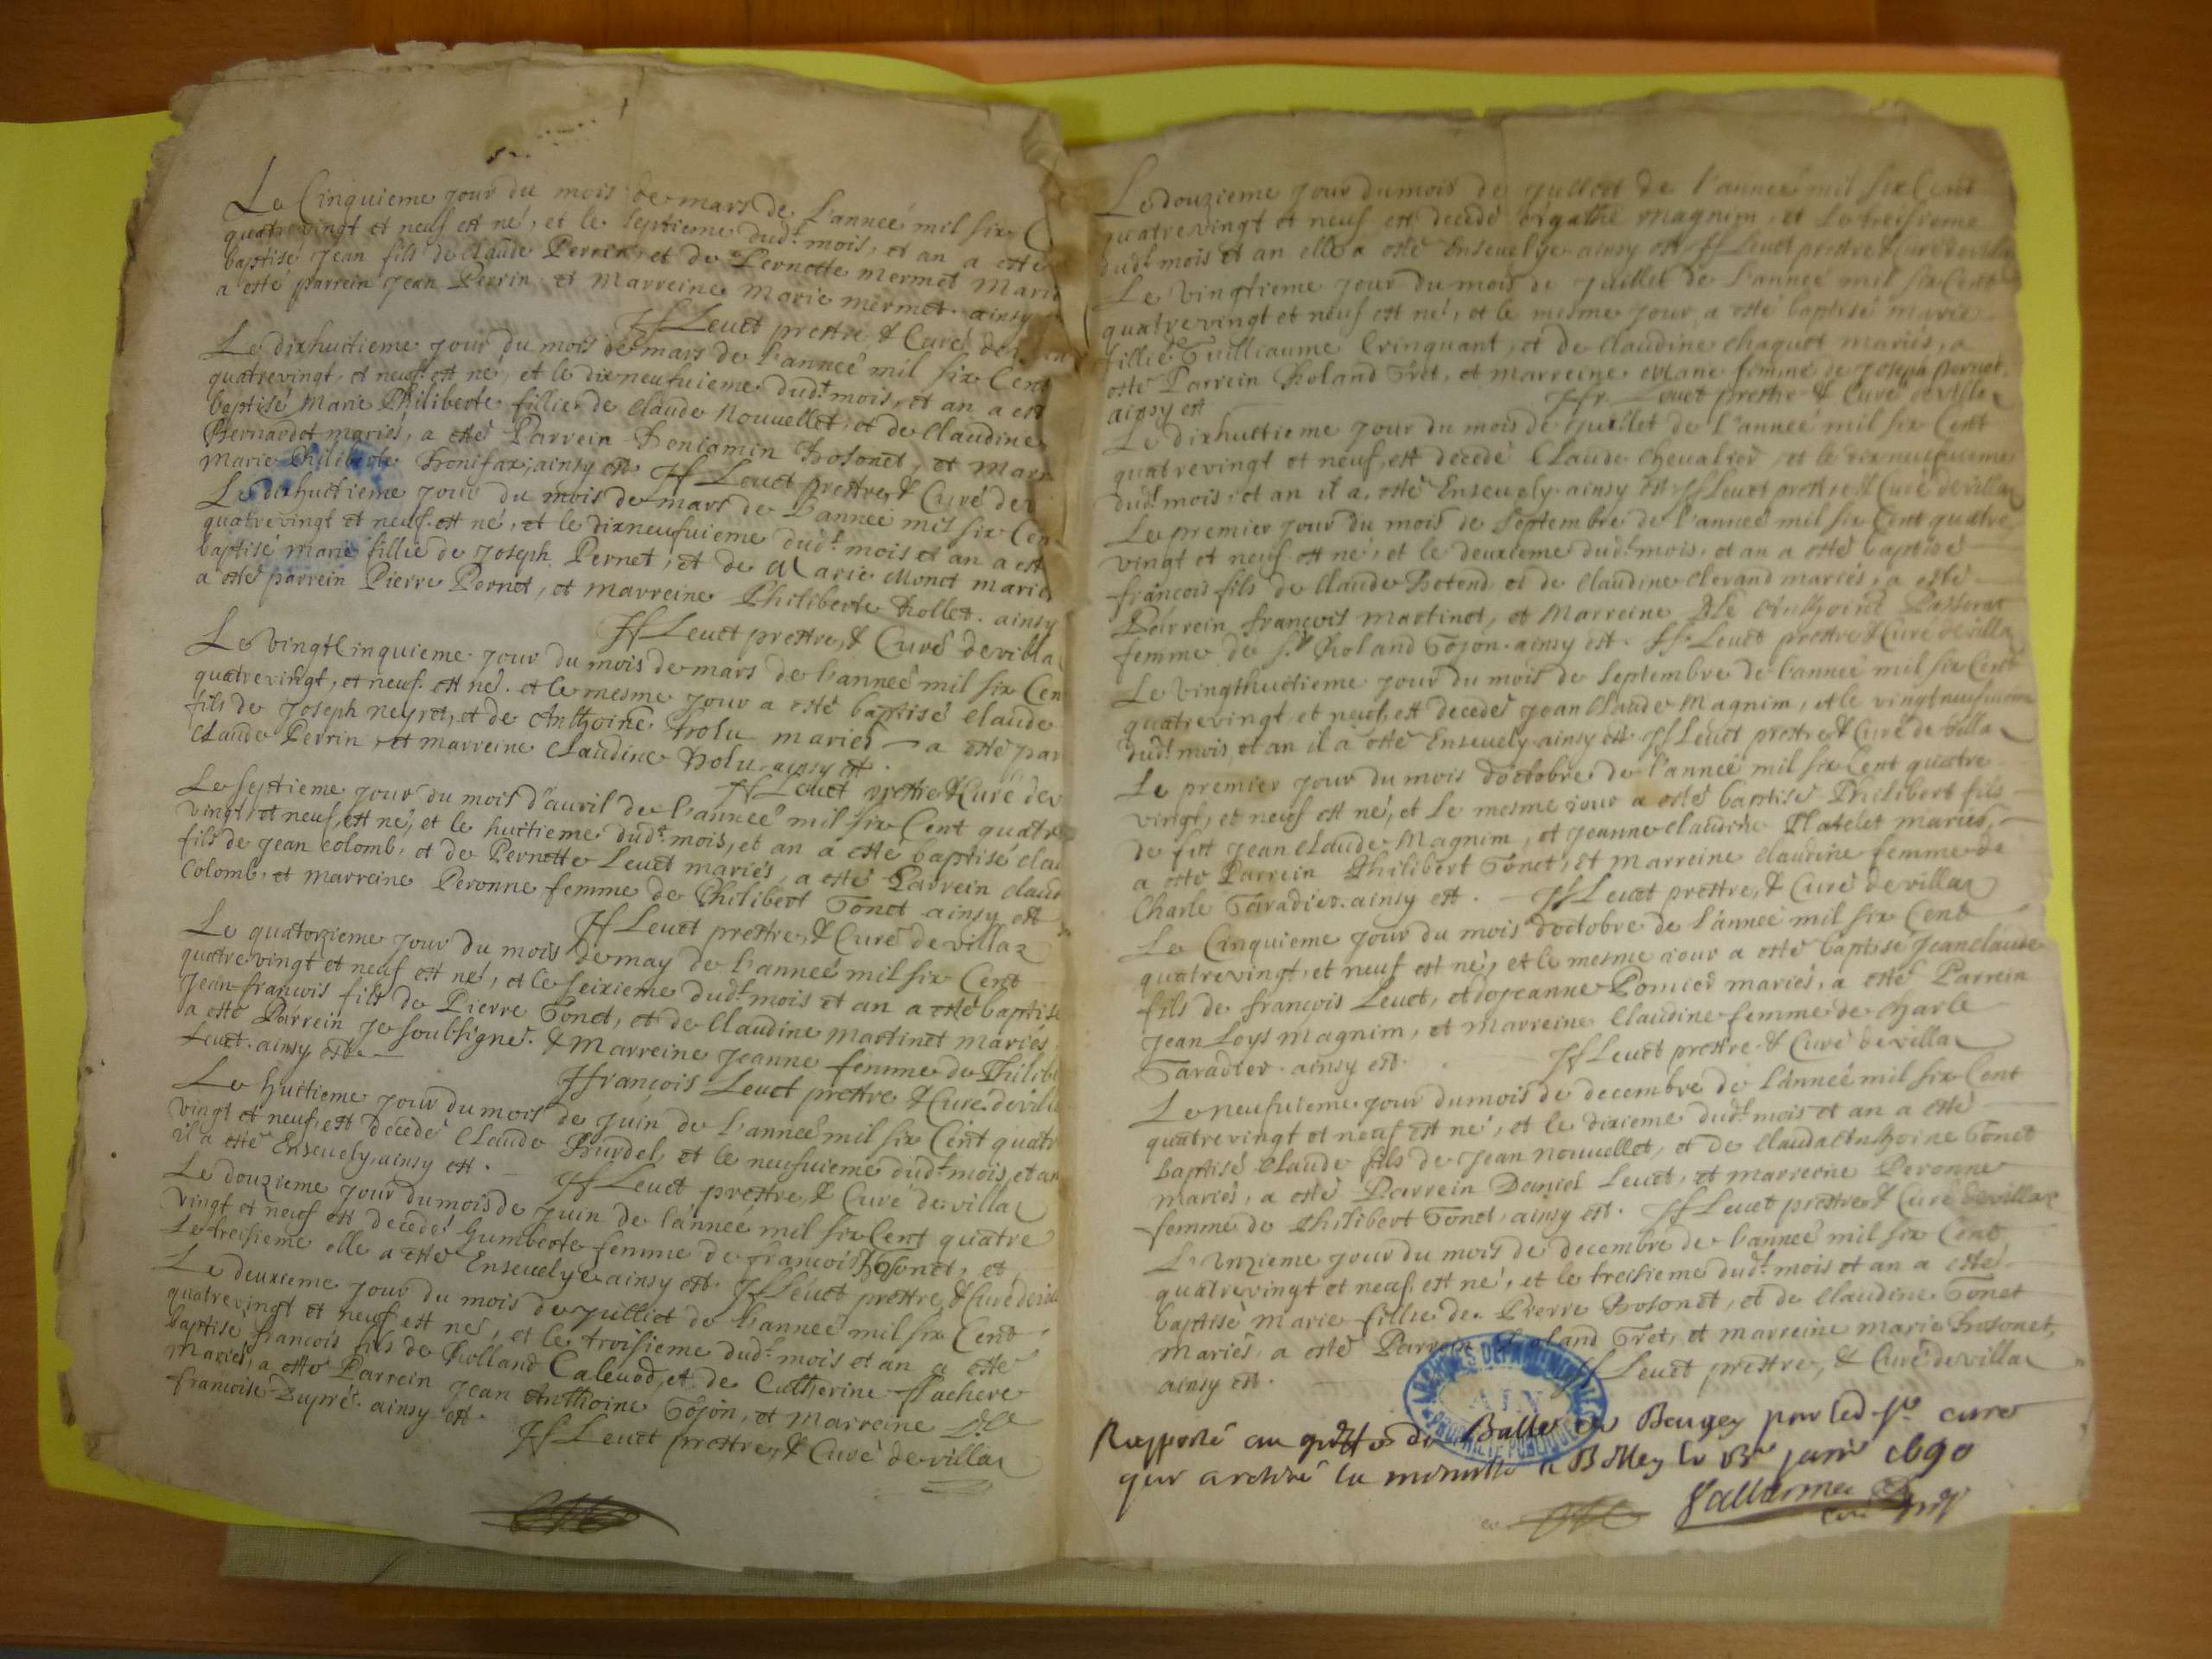 Le Cinquieme jour du mois de mars de l'anneé mil six C
quatrevingt et neuf est né, et le septieme dud.t mois, et an a esté
baptisé jean fils de Claude Perrin, et de Pernette mermet Marie
a esté parrein jean Perrin, et Marreine Marie mermet. ainsy
ff Levet prestre & Curé de villa
Le dixhuitieme jour du mois de mars de l'anneé mil six Cent
quatrevingt, et neuf est né, et le dixneufvieme dud.t mois, et an a est
baptisé Marie Philiberte fillie de Claude Nouvellet, et de Claudine
Bernardet mariés, a esté Parrein Beniamin Bosonet, et Marr
Marie Philiberte Bonifax, ainsy est. ff Levet prestre & Curé de v
Le dixhuitieme jour du mois de mars de l'anneé mil six Cen
quatrevingt et neuf est né, et le dixneufvieme dud.t mois et an a est
baptisé marie fillie de joseph Pernet, et de Marie Monet marie
a esté parrein Pierre Pernet, et marreine Philiberte Rollet. ainsy
ff Levet prestre, & Curé de villa
Le Vingtcinquieme jour du mois de mars de l'anneé mil six Cen
quatrevingt, et neuf est né. et le mesme jour a esté baptisé Claude
fils de joseph neyret, et de Anthoine Bolu mariés a esté par
Claude Perrin, et marreine Claudine Bolu. ainsy est.
ff Levet prestre & Curé de v
Le septieme jour du mois d'avril de l'anneé mil six Cent quatre
vingt, et neuf, est né, et le huitieme dud.t mois, et an a esté baptisé clau
fils de jean colomb, et de Pernette Levet mariés, a esté Parrein claud
Colomb, et marreine Peronne femme de Philibert Tonet ainsy est
ff Levet prestre, & Curé de villa
Le quatorzieme jour du mois de may de l'anneé mil six Cent
quatrevingt et neuf est né, et le seixieme dud.t mois et an a esté baptisé
jean francois fils de Pierre Tonet, et de Claudine martinet mariés
a esté Parrein je soubsigné. & Marreine jeanne femme de Philibe
Levet. ainsy est.
ffrançois Levet prestre & Curé de villa
Le huitieme jour du mois de juin de l'anneé mil six Cent quatr
vingt et neuf, est decedé Claude Burdel, et le neufvieme dud.t mois, et an
il a esté Ensevely, ainsy est. ff Levet prestre, & Curé de villa
Le douzieme jour du mois de juin de l'anneé mil six Cent quatre
vingt et neuf est decedé humberte femme de françois Tonet, et
Le treisieme elle a esté Ensevelye ainsy est. ff Levet prestre, & Curé de vil
Le deuxieme jour du mois de jullliet de l'anneé mil six Cent
quatrevingt et neuf est né, et le troisieme dud.t mois et an a esté
baptisé francois fils de Rolland Calevod, et de Catherine flachere
Mariés, a esté Parrein jean Anthoine Gojon, et Marreine D.lle
francoise Dupré. ainsy est.
ff Levet prestre, & Curé de villa
Le douzieme jour du mois de jullliet de l'anneé mil six Cent
quatrevingt et neuf est decedé Agathe magnim, et le treisieme
dud.t mois et an elle a esté Ensevelye ainsy est ff Levet prestre & Curé de villa
Le vingtieme jour du mois de juillet de l'anneé mil six Cent
quatrevingt et neuf est né, et le mesme jour a esté baptisé marie
fillie Guilliaume Crinquant, et de Claudine Chaquet mariés, a
esté Parrein Roland Gret, et marreine femme de joseph Pernet.
ainsy est ffr. Levet prestre & Curé de villa
Le dixhuitieme jour du mois de juillet de l'anneé mil six Cent
quatrevingt et neuf, est decedé Claude Chevalier, et le dixneufvieme
dud.t mois, et an il a esté Ensevely. ainsy est ff Levet prestre & Curé de villa
Le premier jour du mois de septembre de l'anneé mil six Cent quatre
vingt et neuf est né, et le deuxieme dud.t mois, et an a esté baptisé
françois fils de Claude Betend et de Claudine Clerand mariés, a esté
Parrein françois martinet, et Marreine D.lle Anthoine Passerat
femme de s.r Roland Gojon. ainsy est. ff Levet prestre & Curé de villa
Le vingthuitieme jour du mois de septembre de l'anneé mil six Cent
quatrevingt, et neuf, est decedé jean Claude Magnim, et le vingtneufvieme
dud.t mois, et an il a esté Ensevely ainsy est ff Levet prestre & Curé de villa
Le premier jour du mois d'octobre de l'anneé mil six Cent quatre
vingt, et neuf est né, et le mesme jour a esté baptisé Philibert fils
de fut jean Claude Magnim, et jeanne Claudine Platelet mariés,
a esté Parrein Philibert Tonet, et marreine Claudine femme de
Charle Taradier. ainsy est. ff Levet prestre, & Curé de villa
Le Cinquieme jour du mois d'octobre de l'anneé mil six Cent
quatrevingt, et neuf est né, et le mesme jour a esté baptisé jean claude
fils de françois Levet, et de jeanne Pomier mariés, a esté Parrein
jean Loys magnim, et Marreine Claudine femme de charle
Taradier. ainsy est. ff Levet prestre & Curé de villa
Le neufvieme jour du mois de decembre de l'anneé mil six Cent
quatrevingt et neuf est né, et le dixieme dud.t mois et an a esté
baptisé Claude fils de jean nouvellet, et de Claud Anthoine Tonet
mariés, a esté Parrein Daniel Levet, et marreine Peronne
femme de Philibert Tonet, ainsy est. ff Levet prestre & Curé de villa
L'unzieme jour du mois de decembre de l'anneé mil six Cent
quatrevingt et neuf, est né, et le treisieme dud.t mois et an a esté
baptisé marie fillie de Pierre Bosonet, et de Claudine Tonet
mariés, a esté Parrein Roland Gret, et marreine marie Bosonet,
ainsy est. ff Levet prestre, & Curé de villa
ARCHIVES DEPARTEMENTALES
AIN
PROPRIÉTÉ PUBLIQUE
Rapporté au greffe du Balle de Beugey par led. s.r curé
qui a retiré la minutte a Belley le janv 1690